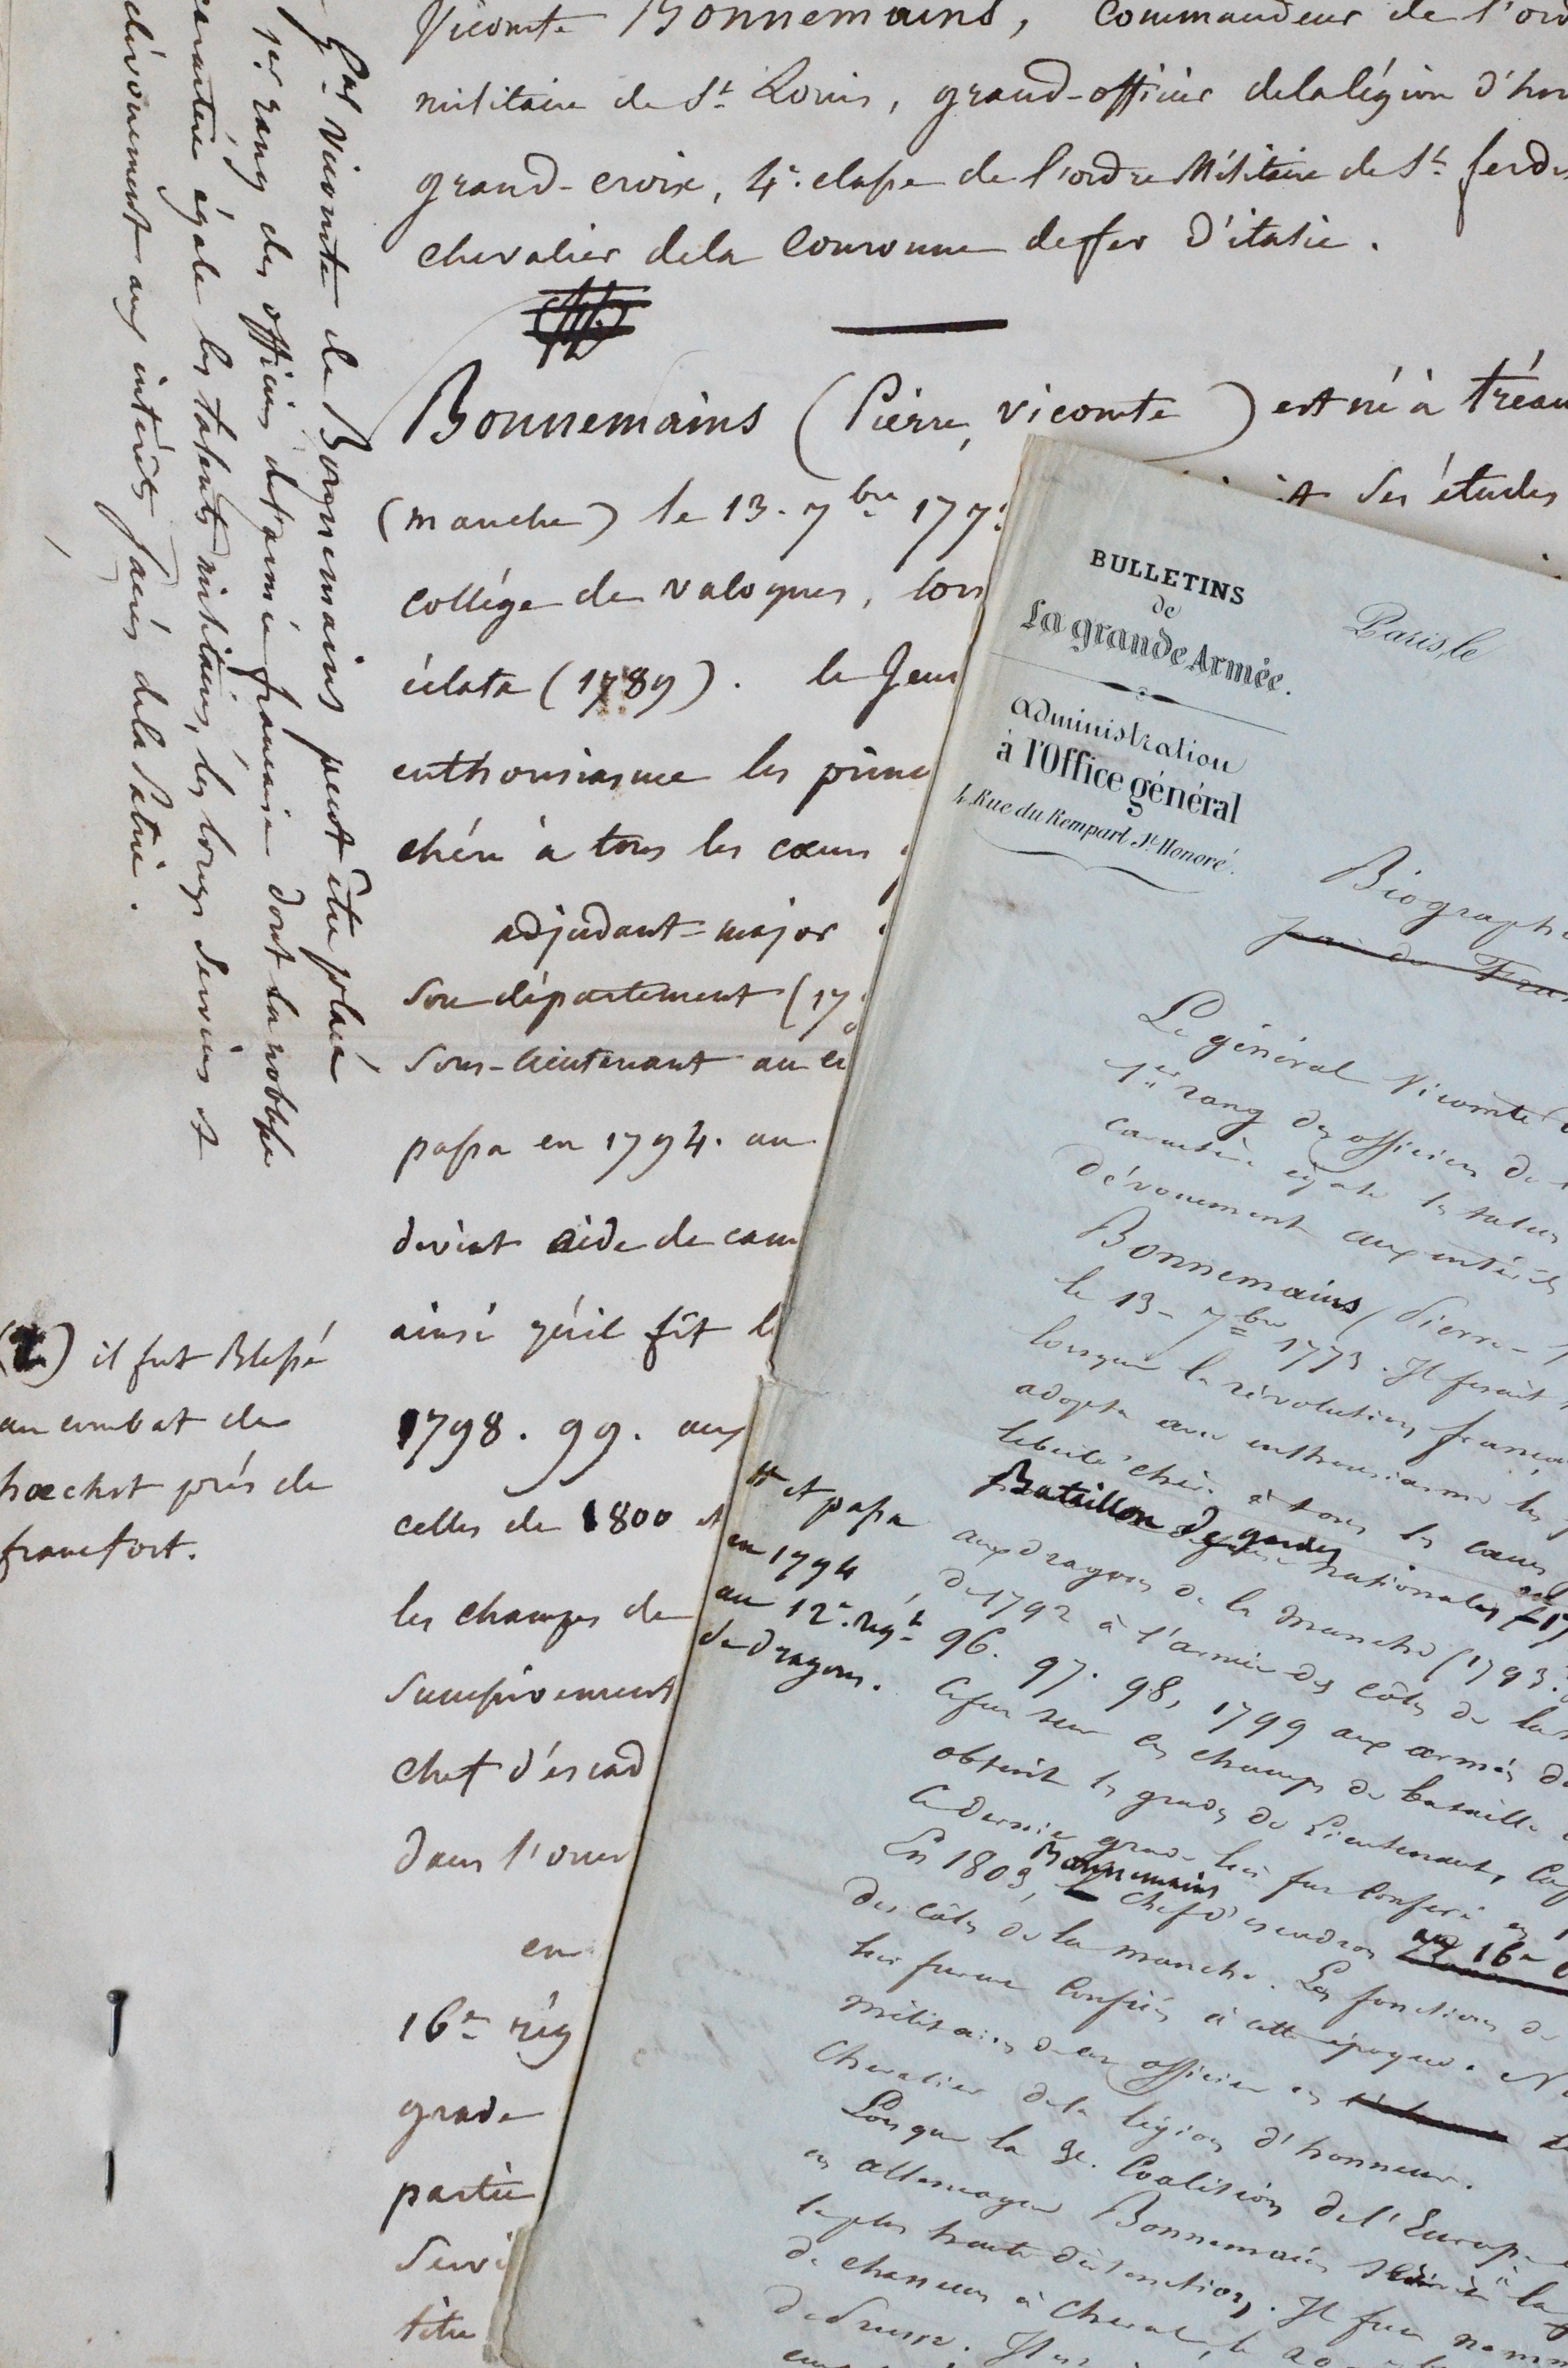 Vicomte Bonnemains, Commandeur de l'ord
militaire de St Louis, grand-officier delalégion d'hon
grand-croix, 4e. classe de l'ordre Militaire de St ferd
chevalier dela Couronne defer d'italie.
Bonnemains (Pierre, vicomte) est né à tréau
(manche) le 13. 7bre 177
ses études
collége de valognes, lors
éclata (1789). le Jeun
enthousiasme les princ
chéri à tous les cœurs
adjudant-major
son département (17
sous-lieutenant au
passa en 1794. au
devint aide de cam
ainsi qu'il fit l
1798. 99. aux
celles de 1800 et
les champs de
Successivement
chef d'escad
dans l'
en
16e rég
grade
partie
Servi
titre
Gal Vicomte de Bonnemains peut être placé
1er rang des officiers de l'armée française dont la noblesse
caractère égale les talents militaires, les longs services et
dévouement aux intérêts sacrés dela Patrie.
il fut Blessé
au combat de
hœchst près de
francfort.
BULLETINS
de
La grande Armée.
Administration
à l'Office général
4, Rue du Rempart St Honoré.
Paris, le
Biographie
Le général Vicomte
1er rang des officiers de
caractère égale les talens
dévouement aux intérêts
Bonnemains (Pierre-
le 13- 7bre 1773. Il fesait
lorsque la révolution français
adopta avec enthousiasme les
liberté chère à tous les cœurs
Bataillon de gardes nationales (17
aux dragons de la Manche (1793.
de 1792 à l'armée des côtes de
96. 97. 98, 1799 aux armées d
Ce fut sur les champs de bataille
obtint les grades de Lieutenant, Cap
Ce dernier grade lui fut conféré en
En 1803, Bonnemains Chef d'escadron au 16e
des côtes de la manche. Les fonctions de
lui furent confiées à cette époque.
militaires de cet officier
Chevalier dela légion d'honneur.
Lorsque la 3e. Coalition de l'Europe
en allemagne Bonnemains
la plus haute distinction. Il fut nomm
de chasseurs à cheval, le 20
de Prusse.
et passa
en 1794
au 12e. régt
de dragons.